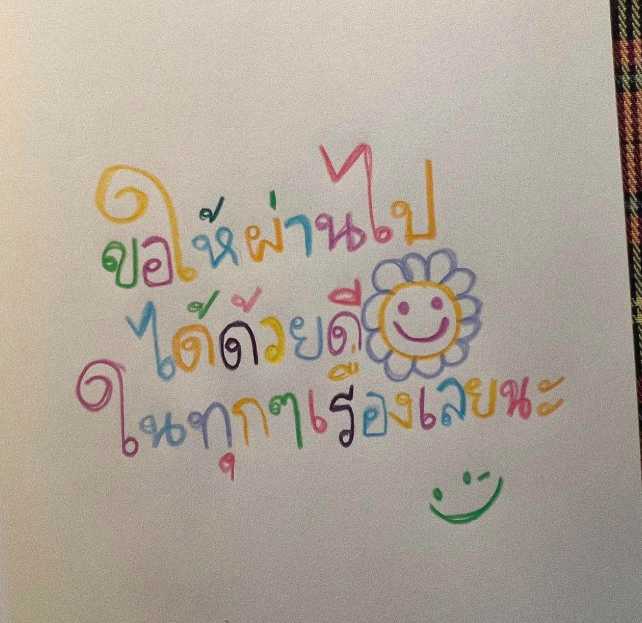 ขอให้ผ่านไป
ได้ด้วยดี
ในทุกๆเรื่องเลยนะ